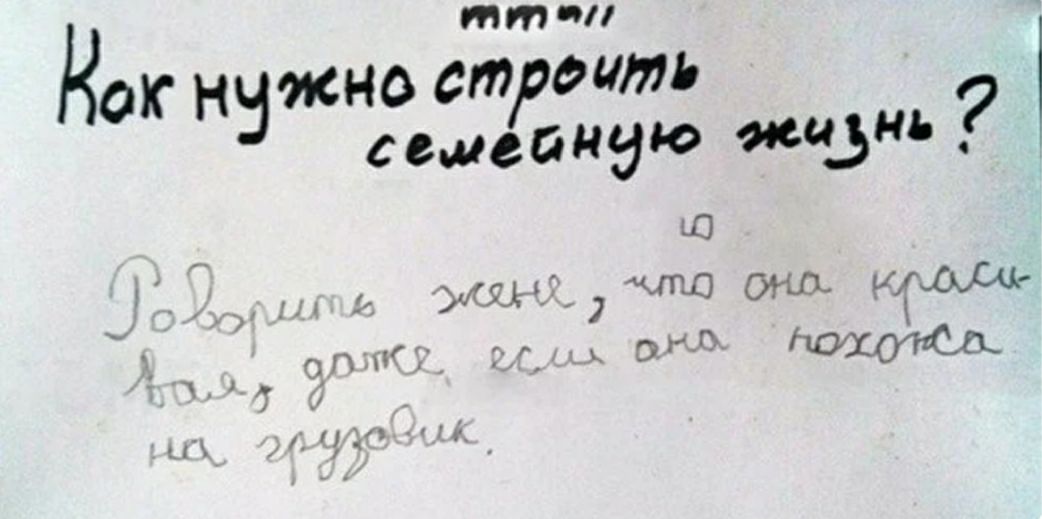 Как нужно строить
семейную жизнь?
Говорить жене, что она краси-
вая, даже если она похожа
на грузовик.